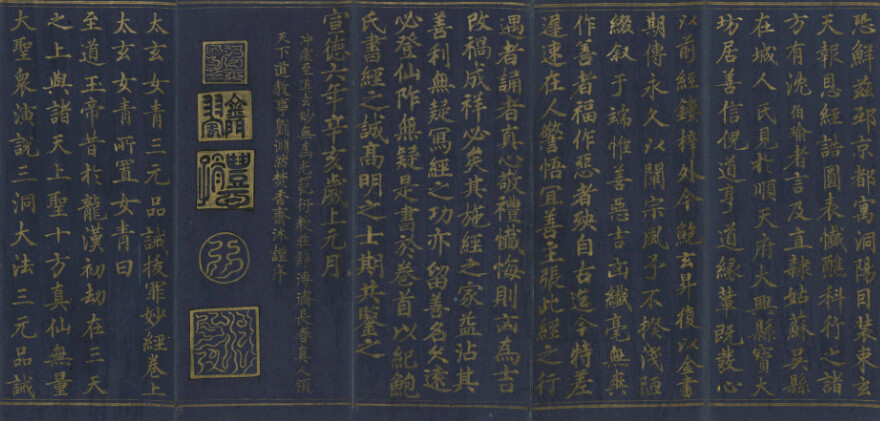 恐鮮兹邳京都寓洞陽目裝東玄
天報恩經誥圖表懺醮科行之諸
方有沈伯瑜者言及直隸姑蘇吴縣
在城人氏見於順天府大興縣寶大
坊居善信倪道亨道緣軰既發心
以前經鏤梓外今鮑玄昇復以金書
期傳永久以闡宗風予不揆淺陋
綴叙于端惟善惡吉凶纖毫無爽
作善者福作惡者殃自古迄今特差
遲速在人警悟冝善主張此經之行
遇者誦者真心敬禮懺悔則凶為吉
改禍成祥必矣其施經之家益沾其
善利無疑寫經之功亦留善名久遠
必登仙阼無疑是書於卷首以紀鮑
氏書經之誠高明之士期共鑒之
宣德六年辛亥歲上元月
沖虛至道玄妙無為光範衍教莊靜普濟長春真人領
天下道教事劉淵然焚香齋沐謹序
太玄女青三元品誡拔罪妙經卷上
太玄女青所置女青曰
至道玉帝昔於龍漢初劫在三天
之上與諸天上聖十方真仙無量
大聖衆演説三洞大法三元品誡